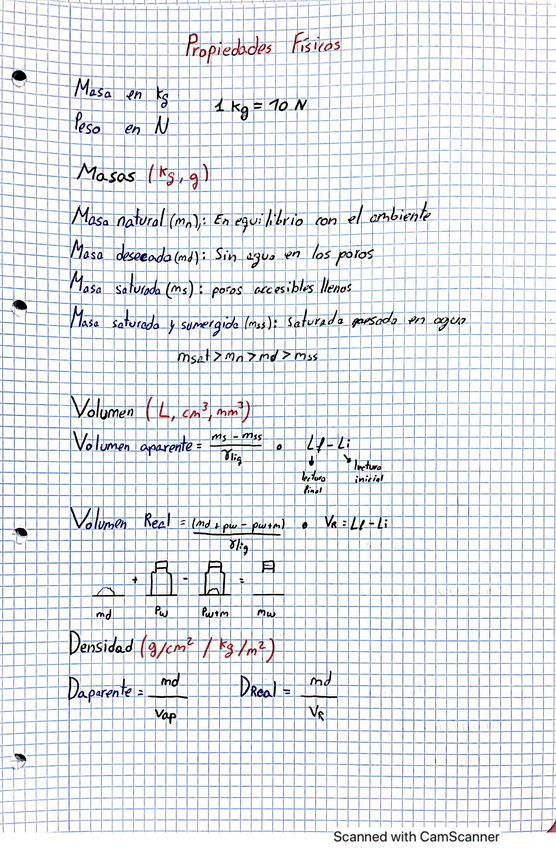 Propiedades Físicas
Masa en kg
1 kg = 10 N
Peso en N
Masas (kg, g)
Masa natural (mn): En equilibrio con el ambiente
Masa desecada (md): Sin agua en los poros
Masa saturada (ms): poros accesibles llenos
Masa saturada y sumergida (mss): saturada pesada en agua
msat > mn > md > mss
Volumen (L, cm³, mm³)
Volumen aparente = (ms - mss) / γliq • Lf - Li
lectura final lectura inicial
Volumen Real = (md + pw - pw+m) / γliq • VR = Lf - Li
+ - =
md Pw Pw+m mw
Densidad (g/cm² / kg/m²)
Daparente = md / Vap DReal = md / VR
Scanned with CamScanner